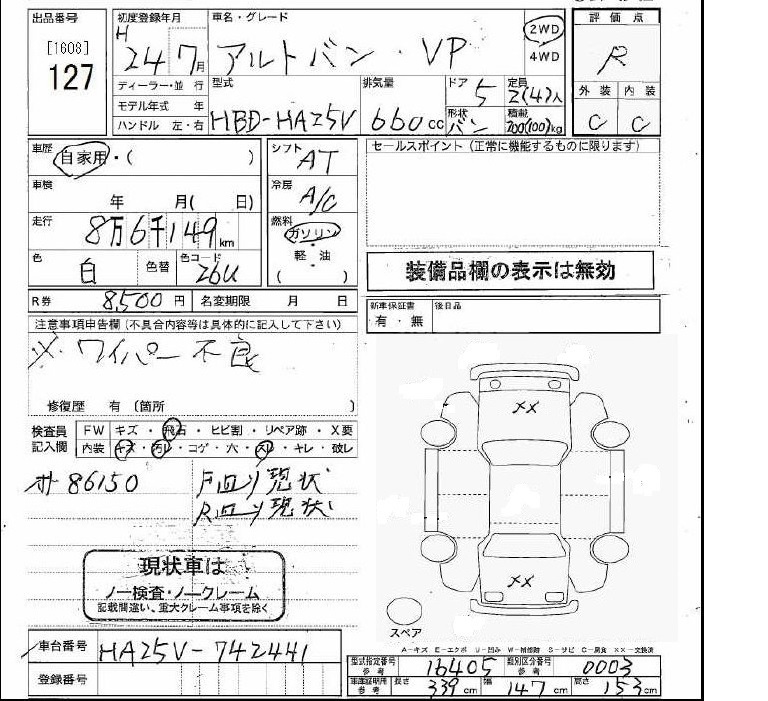 出品番号
[1608]
127
初度登録年月
H
24 7月
車名・グレード
アルトバン・VP
2WD
4WD
評価点
R
外装 内装
C C
ディーラー・並行
モデル年式 年
ハンドル 左・右
型式
HBD-HA25V
排気量
660cc
ドア
5
形状
バン
定員
2(4)人
積載
200(100)kg
車歴
自家用・( )
車検
年 月( 日)
走行
8万6千149km
色
白
色替
色コード
26U
シフト
AT
冷房
A/C
燃料
ガソリン
・
軽油
( )
R券 8,500円 名変期限 月 日
セールスポイント(正常に機能するものに限ります)
装備品欄の表示は無効
新車保証書
有・無
後日品
注意事項申告欄(不具合内容等は具体的に記入して下さい)
※・ワイパー不良
修復歴 有(箇所 )
検査員
記入欄
FW キズ・飛石・ヒビ割・リペア跡・X要
内装 キズ・汚レ・コゲ・穴・スレ・キレ・破レ
86150
F回り現状
R回り現状
現状車は
ノー検査・ノークレーム
記載間違い、重大クレーム事項を除く
XX
XX
スペア
A-キズ E-エクボ U-凹み W-補修跡 S-サビ C-腐食 XX-交換済
車台番号 HA25V-742441
登録番号
型式指定番号
参考
16405
類別区分番号
参考
0003
車庫証明用
参考
長さ 339cm 幅 147cm 高さ 153cm